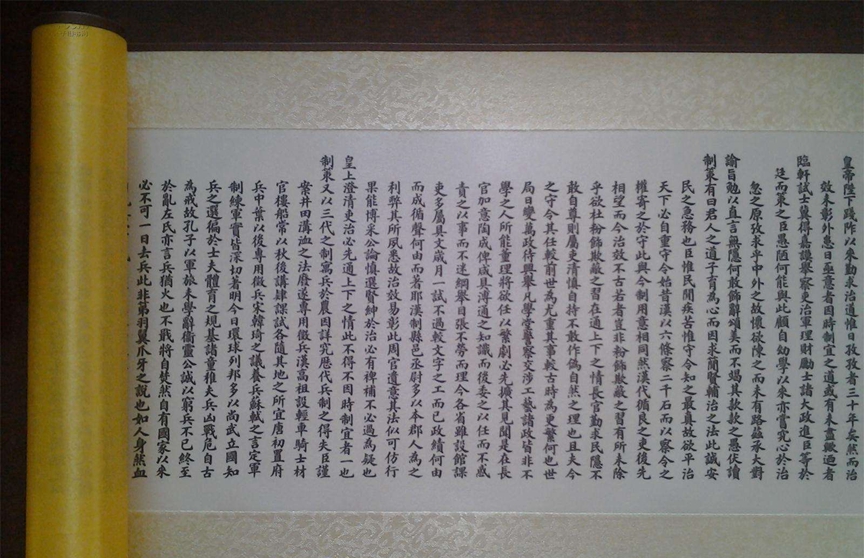 皇帝陛下踐阼以來勤求治道惟日孜孜者三十年矣然而治
效未彰外患日亟意者因時制宜之道或有未盡歟迺者
臨軒試士冀得嘉謨舉察吏治軍理財勵士諸大政進臣等於
廷而策之臣愚陋何能與此顧自幼學以來亦嘗究心於治
忽之原攷求乎中外之故懷欲陳之而未有路茲承大對
諭旨勉以直言無隱何敢飾辭頌美而不竭其款款之愚伏讀
制策有曰君人之道子育為心而因求開賢輔治之法此誠安
民之急務也臣惟民間疾苦惟守令知之最真故欲平治
天下必自重守令始昔漢以六條察二千石而以察令之
權寄之於守此與今制用意相同然漢代循良之吏後先
相望而今治效不古若者豈非粉飾欺蔽之習有所未除
乎欲杜粉飾欺蔽之習在通上下之情長官勤求民隱不
敢自尊則屬吏清慎自持不敢作偽自然之理也且夫今
之守令其任較前世為尤重其事較古時為更繁何也世
局日變萬政待興舉凡學堂警察交涉工藝諸政皆非不
學之人所能董理將欲任以繁劇必先擴其見聞是在長
官加意陶成俾咸具溥通之知識而後委之以任而不惑
責之以事而不迷綱舉目張不勞而理今各省雖設館課
吏多屬具文歲月一試不過較文字之工而已政績何由
而成循聲何由而著耶漢制縣邑丞尉多以本郡人為之
利弊其所夙悉故治效易彰此周官遺意其法似可仿行
果能博采公論慎選賢紳於治必有裨補不必過為疑也
皇上澄清吏治必先通上下之情此不得不因時制宜者一也
制策又以三代之制寓兵於農因詳究歷代兵制之得失臣謹
案井田溝洫之法廢遂專用徵兵漢高祖設輕車騎士材
官樓船常以秋後講肄課試各隨其地之所宜唐初置府
兵中葉以後專用徵兵宋韓琦之議養兵蘇軾之言定軍
制練軍實皆深切著明今日環球列邦多以尚武立國知
兵之選徧於士夫體育之規基諸童稚夫兵凶戰危自古
為戒故孔子以軍旅未學辭衛靈公誠以窮兵不已終至
於亂左氏亦言兵猶火也不戢將自焚然自有國家以來
必不可一日去兵此非第羽翼爪牙之說也如人身然血